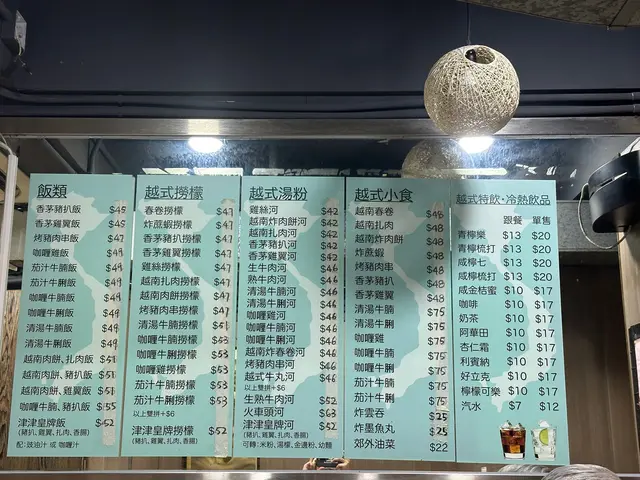 飯類
香茅豬扒飯 $45
香茅雞翼飯 $45
烤豬肉串飯 $47
咖喱雞飯 $49
茄汁牛腩飯 $49
茄汁牛脷飯 $49
咖喱牛腩飯 $49
咖喱牛脷飯 $49
清湯牛腩飯 $49
清湯牛脷飯 $49
越南肉餅、扎肉飯 $51
越南肉餅、豬扒飯 $51
越南肉餅、雞翼飯 $51
咖喱牛腩、豬扒飯 $55
津津皇牌飯 $52
(豬扒, 雞翼, 扎肉, 香腸)
配：豉油汁 或 咖喱汁
越式撈檬
春卷撈檬 $47
炸蔗蝦撈檬 $47
香茅豬扒撈檬 $47
香茅雞翼撈檬 $47
雞絲撈檬 $47
越南扎肉撈檬 $47
越南肉餅撈檬 $47
烤豬肉串撈檬 $47
清湯牛腩撈檬 $51
清湯牛脷撈檬 $51
咖喱牛腩撈檬 $53
咖喱牛脷撈檬 $53
咖喱雞撈檬 $53
茄汁牛腩撈檬 $53
茄汁牛脷撈檬 $53
以上雙拼+$6
津津皇牌撈檬 $52
(豬扒, 雞翼, 扎肉, 香腸)
越式湯粉
雞絲河 $42
越南炸肉餅河 $42
越南扎肉河 $42
香茅豬扒河 $42
香茅雞翼河 $42
生牛肉河 $46
熟牛肉河 $46
清湯牛腩河 $46
清湯牛脷河 $46
咖喱雞河 $46
咖喱牛腩河 $46
咖喱牛脷河 $46
越南炸春卷河 $46
烤豬肉串河 $46
越式牛丸河 $46
以上雙拼+$6
生熟牛肉河 $52
火車頭河 $63
津津皇牌河 $52
(豬扒, 雞翼, 扎肉, 香腸)
可轉：米粉、湯檬、金邊粉、幼麵
越式小食
越南春卷 $48
越南扎肉 $48
越南炸肉餅 $48
炸蔗蝦 $48
烤豬肉串 $48
香茅豬扒 $48
香茅雞翼 $48
清湯牛腩 $75
清湯牛脷 $75
咖喱雞 $75
咖喱牛腩 $75
咖喱牛脷 $75
茄汁牛腩 $75
茄汁牛脷 $75
炸雲吞 $25
炸墨魚丸 $25
郊外油菜 $22
越式特飲・冷熱飲品
跟餐 單售
青檸樂 $13 $20
青檸梳打 $13 $20
咸檸七 $13 $20
咸檸梳打 $13 $20
咸金桔蜜 $10 $17
咖啡 $10 $17
奶茶 $10 $17
阿華田 $10 $17
杏仁霜 $10 $17
利賓納 $10 $17
好立克 $10 $17
檸檬可樂 $10 $17
汽水 $7 $12